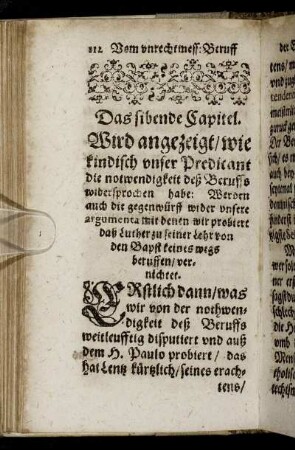 112 Vom vnrechtmess: Beruff
Das sibende Capitel.
Wird angezeigt / wie
kindisch vnser Predicant
die notwendigkeit deß Beruffs
widersprochen habe: Werden
auch die gegenwürff wider vnsere
argumenta mit denen wir probiert
daß Luther zu seiner Lehr von
den Bapst keines wegs
beruffen / ver-
nichtet.
ERstlich dann / was
wir von der nothwen-
digkeit deß Beruffs
weitleufftig disputiert vnd auß
dem H. Paulo probiert / das
hat Lentz kürtzlich / seines erach-
tens /